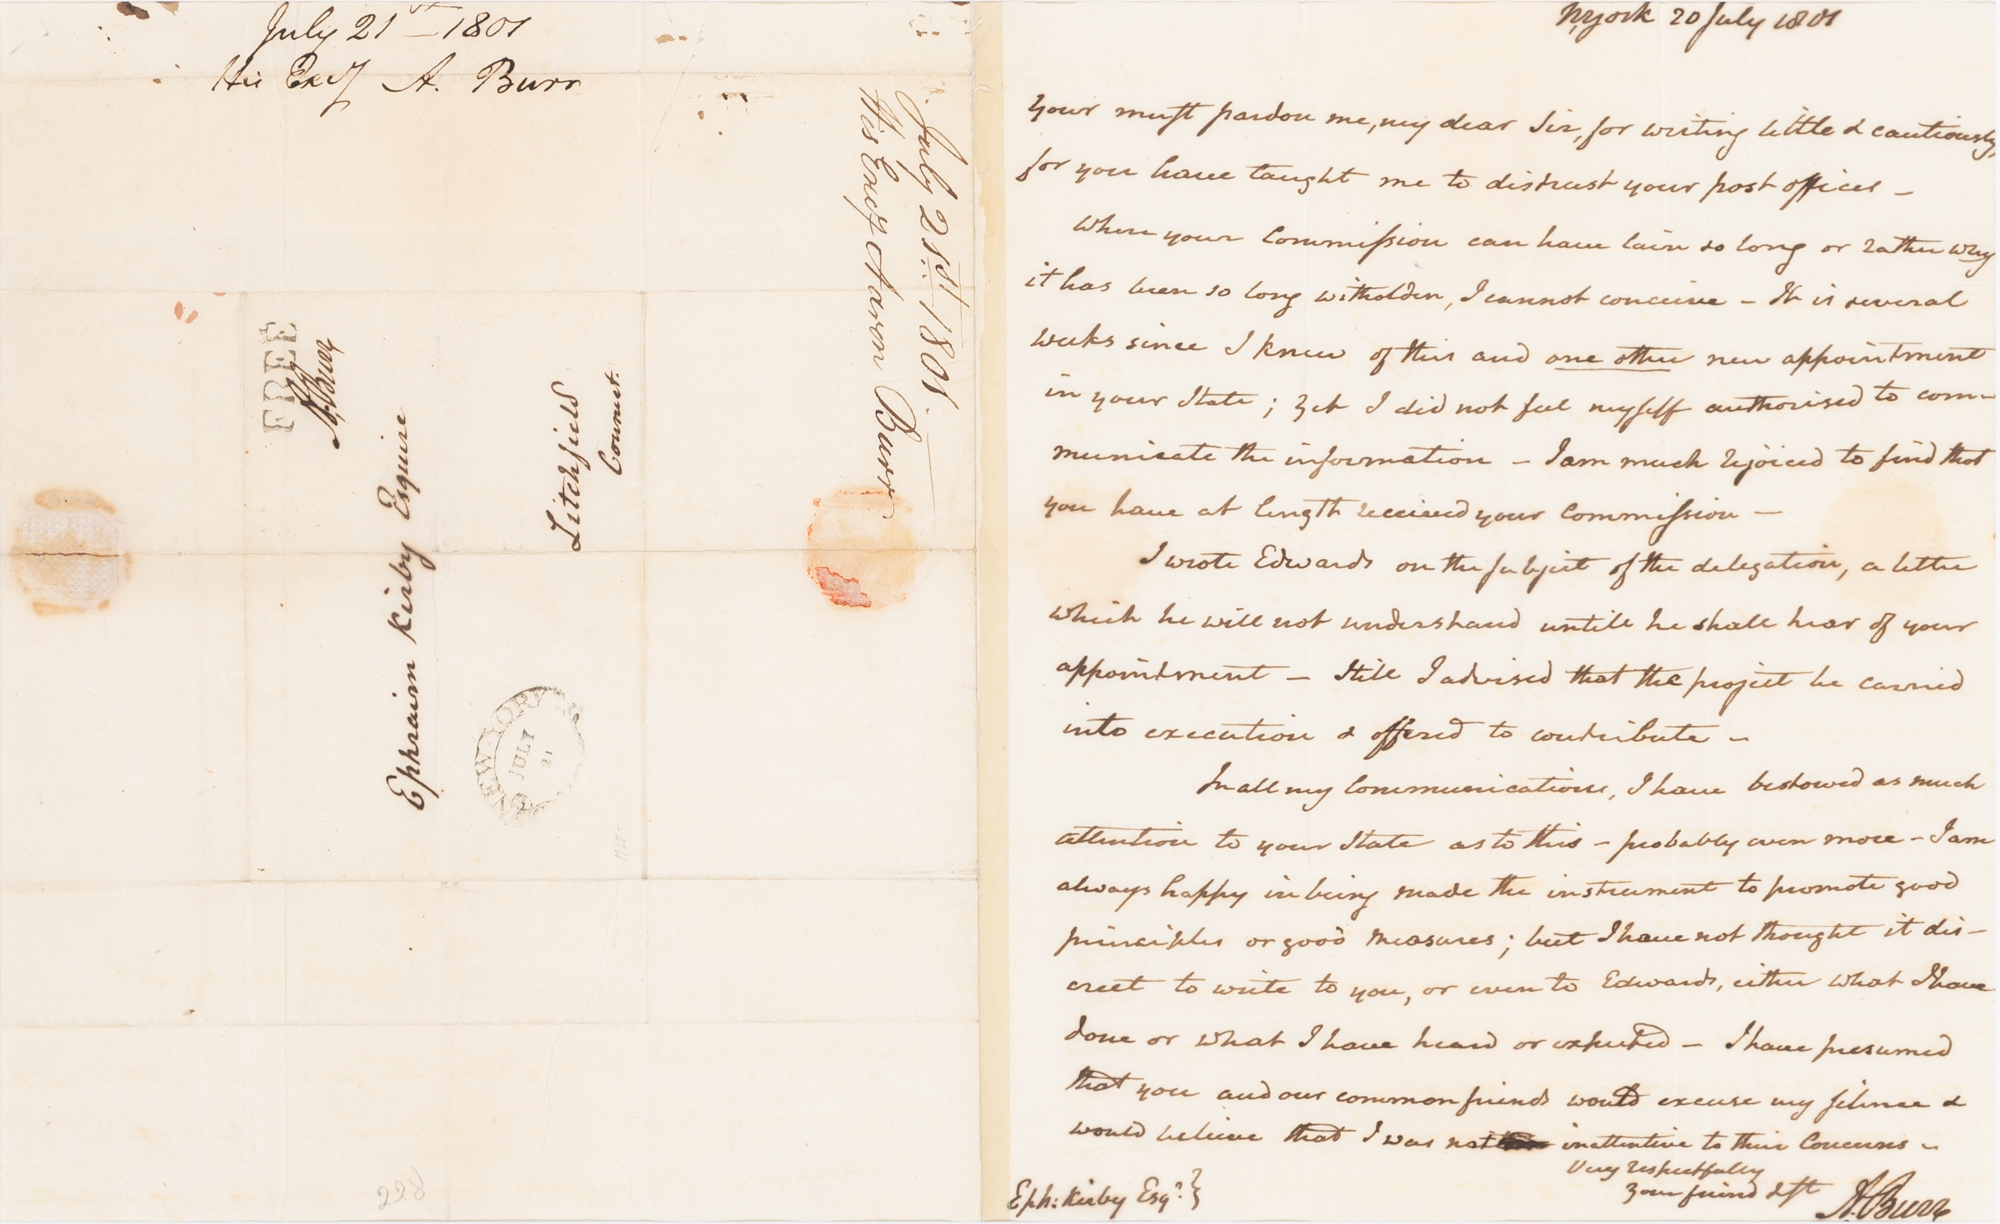 July 21st — 1801
His Excy A. Burr
July 21st 1801.
His Excy Aaron Burr
FREE
A. Burr
Ephraim Kirby Esquire
Litchfield
Connect.
NEW-YORK
JULY
21
228
NYork 20 July 1801
Your must pardon me, my dear Sir, for writing little & cautiously,
for you have taught me to distrust your post offices —
Where your Commission can have lain so long or rather why
it has been so long witholden, I cannot conceive — It is several
weeks since I knew of this and one other new appointment
in your State; yet I did not feel myself authorised to com-
municate the information — I am much rejoiced to find that
you have at length received your Commission —
I wrote Edwards on the subject of the delegation, a letter
which he will not understand untill he shall hear of your
appointment — Still I advised that the project be carried
into execution & offered to contribute —
In all my Communications, I have bestowed as much
attention to your State as to this — probably even more — I am
always happy in being made the instrument to promote good
principles or good measures; but I have not thought it dis-
creet to write to you, or even to Edwards, either what I have
done or what I have heard or expected — I have presumed
that you and our common friends would excuse my silence &
would believe that I was not inattentive to their Concerns —
Very respectfully
Your friend & st
A. Burr
Eph: Kirby Esqr. }